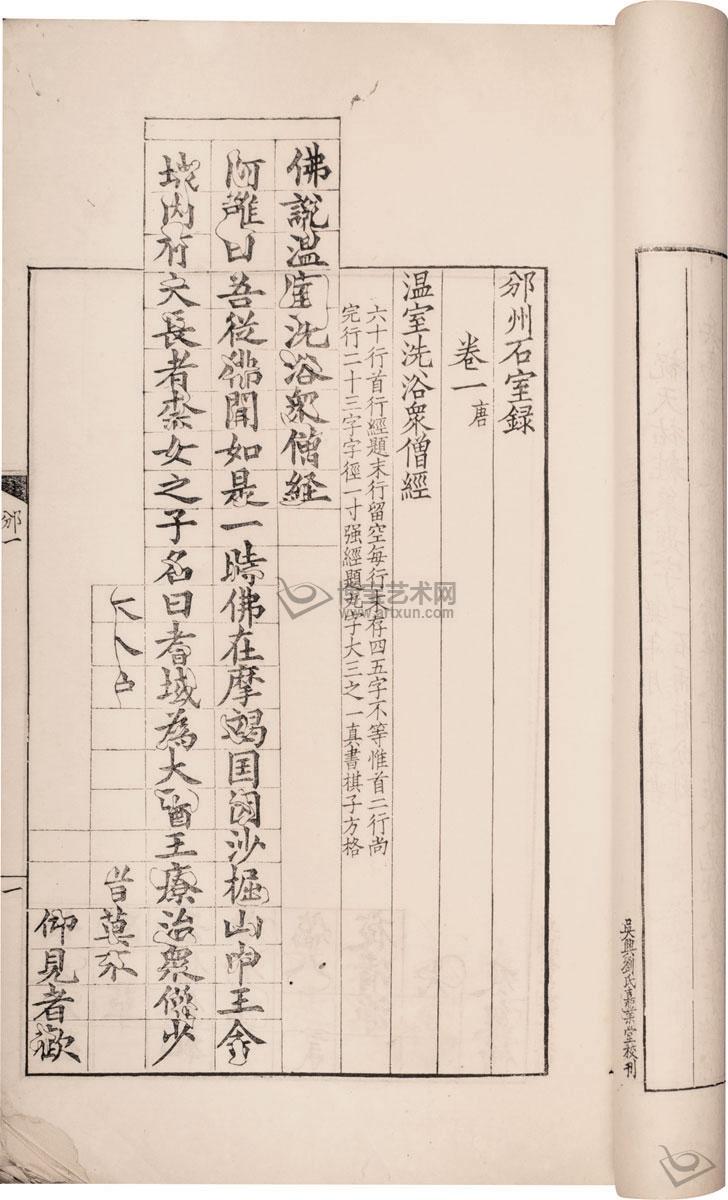 吳興劉氏嘉業堂校刊
邠州石室録
卷一 唐
温室洗浴衆僧經
六十行首行經題末行留空每行末存四五字不等惟首二行尚
完行二十三字字徑一寸强經題九字大三之一真書棋子方格
佛說温室洗浴衆僧経
阿難曰吾從佛聞如是一時佛在摩竭国因沙崛山中王舍
城内有大長者柰女之子名曰耆域為大醫王療治衆僧少
皆莫不
仰見者歡
邠一
一
博宝艺术网
www.artxun.com